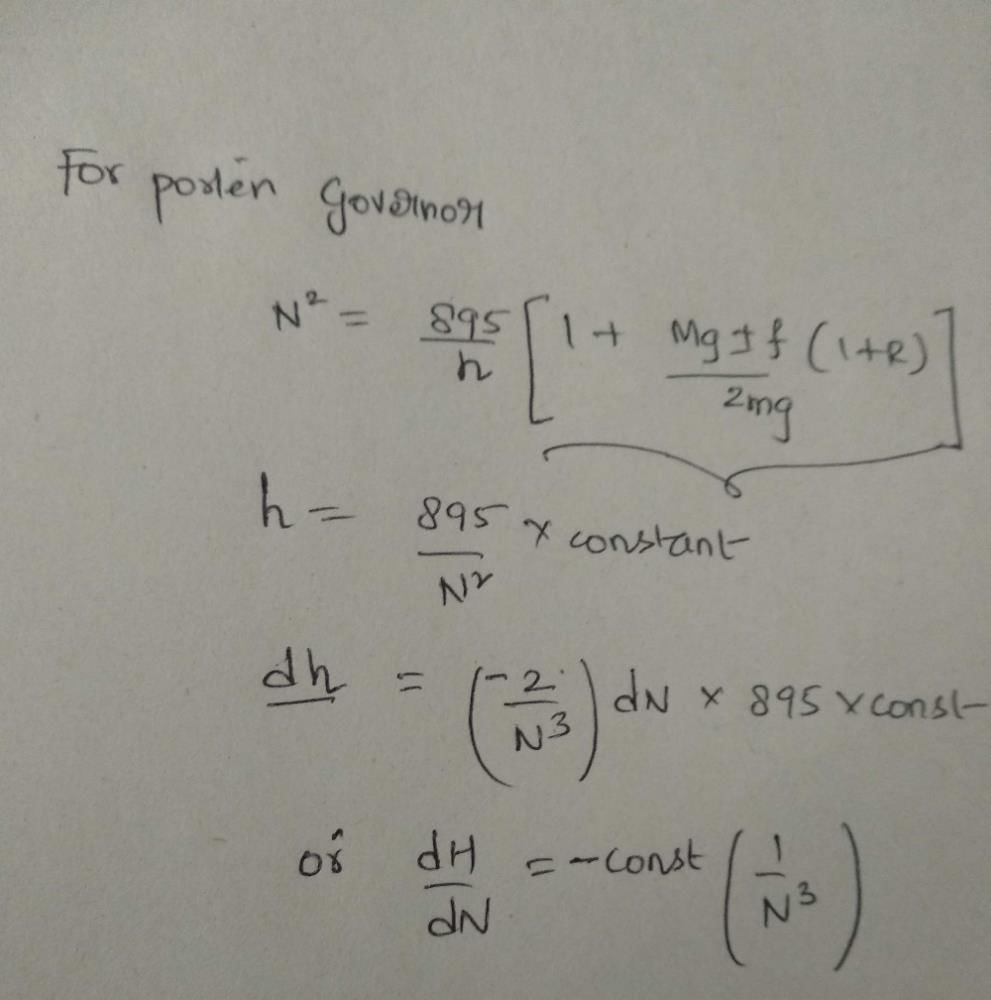 For porlén Governor
N² = 895/h [1 + Mg ± f (1+R)/2mg]
h = 895/N² × constant
dh = (-2/N³) dN × 895 × const
or dH/dN = -const (1/N³)